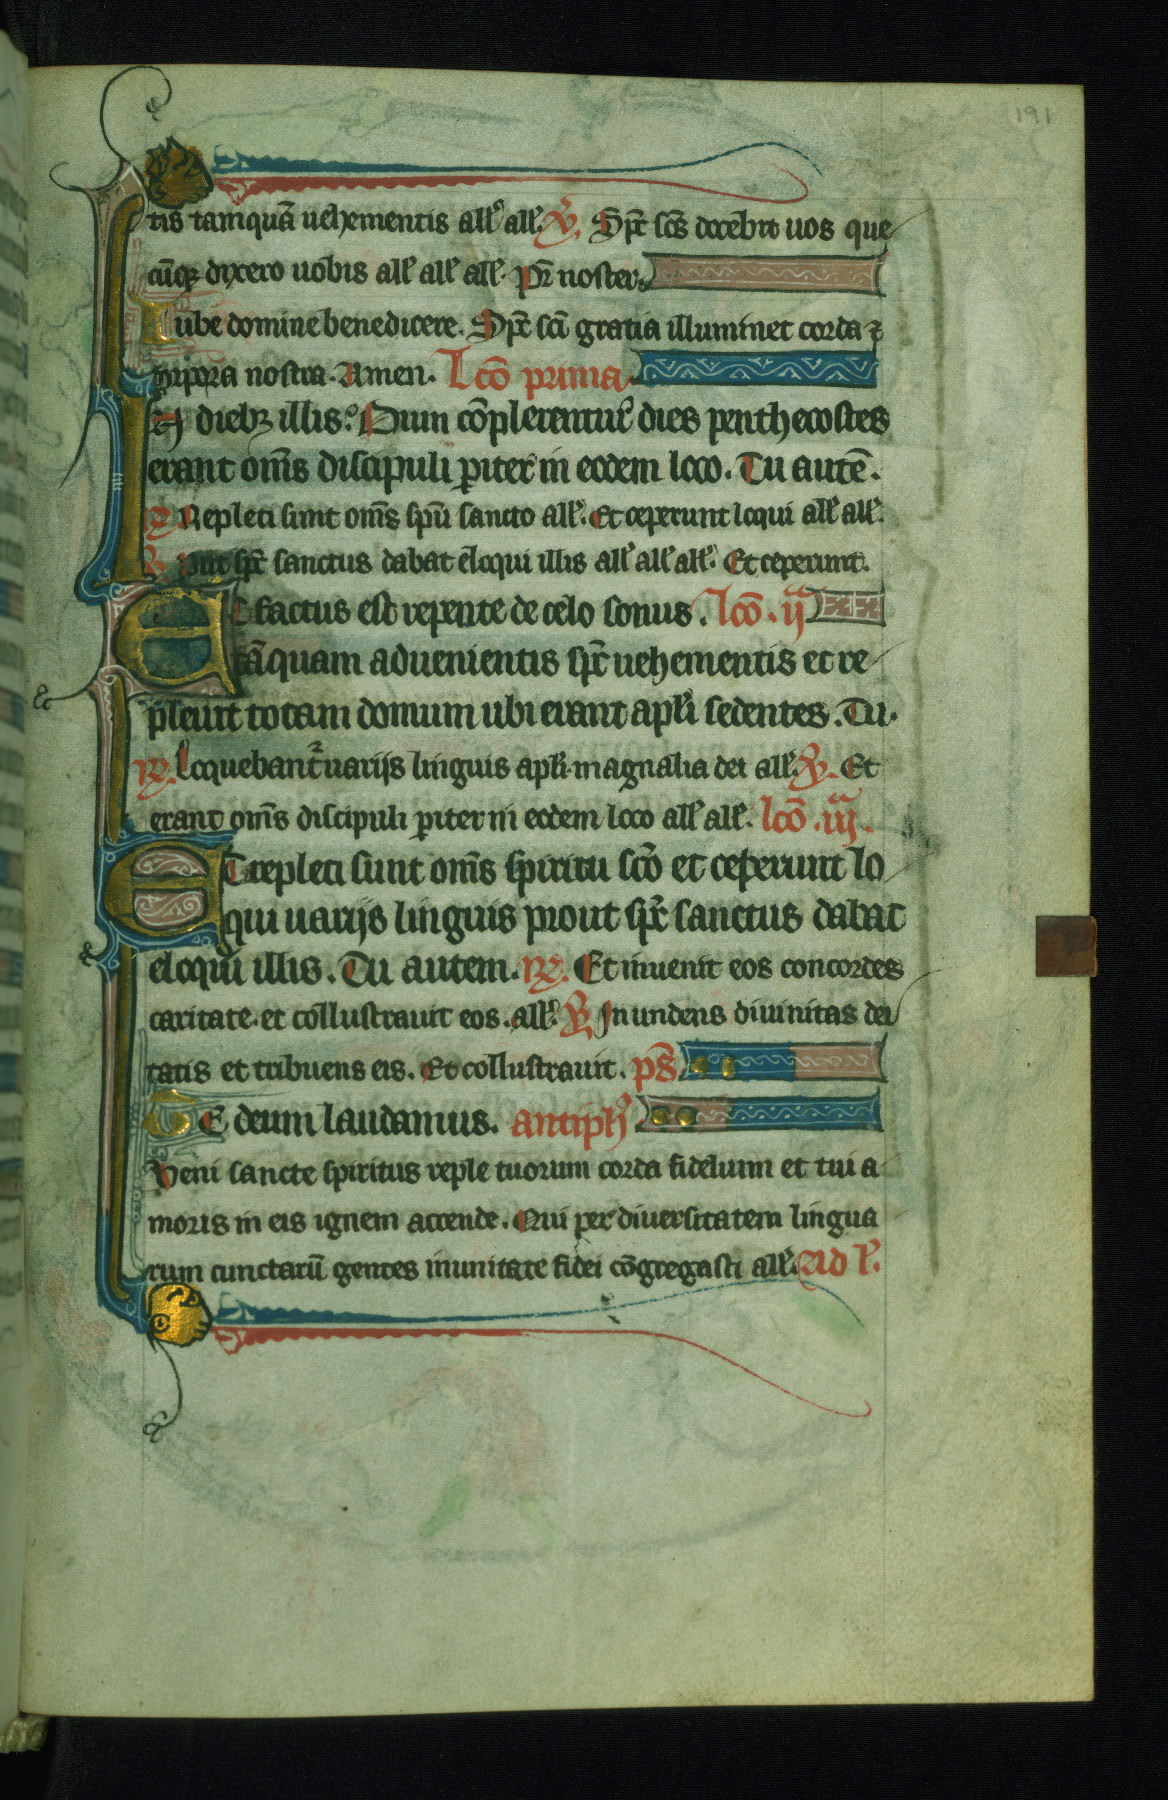 191
tis tamquā uehementis all' all'. ℣. Sp̄c sc̄s docebit uos que
cūq; dixero uobis all' all' all'. Pr̄ noster.
Iube domine benedicere. Sp̄c sc̄i gratia illuminet corda ⁊
corpora nostra. Amen. Lcō prima.
In dieb; illis. Dum cōplerentur dies penthecostes
erant om̄s discipuli ꝑiter in eodem loco. Tu autē.
℟. Repleti sunt om̄s sp̄u sancto all'. Et ceperunt loqui all' all'.
℣. Prout sp̄c sanctus dabat eloqui illis all' all' all'. Et ceperunt.
Et factus est repente de celo sonus. lcō. ij.ᵃ
tāquam aduenientis sp̄c uehementis et re
pleuit totam domum ubi erant apl'i sedentes. Tu.
℟. Loquebant᷑ uarijs linguis apl'i magnalia dei all'. ℣. Et
erant om̄s discipuli ꝑiter in eodem loco all' all'. lcō. iij.ᵃ
Et repleti sunt om̄s spiritu sc̄o et ceperunt lo
qui uarijs linguis prout sp̄c sanctus dabat
eloqui illis. Tu autem. ℟. Et inuenit eos concordes
caritate. et collustrauit eos. all'. ℣. Inundens diuinitas dei
tatis et tribuens eis. Et collustrauit. ps̄
Te deum laudamus. antiph'
Veni sancte spiritus reple tuorum corda fidelium et tui a
moris in eis ignem accende. Qui per diuersitatem lingua
rum cunctarū gentes inunitate fidei cōgregasti all'. Ad l'.